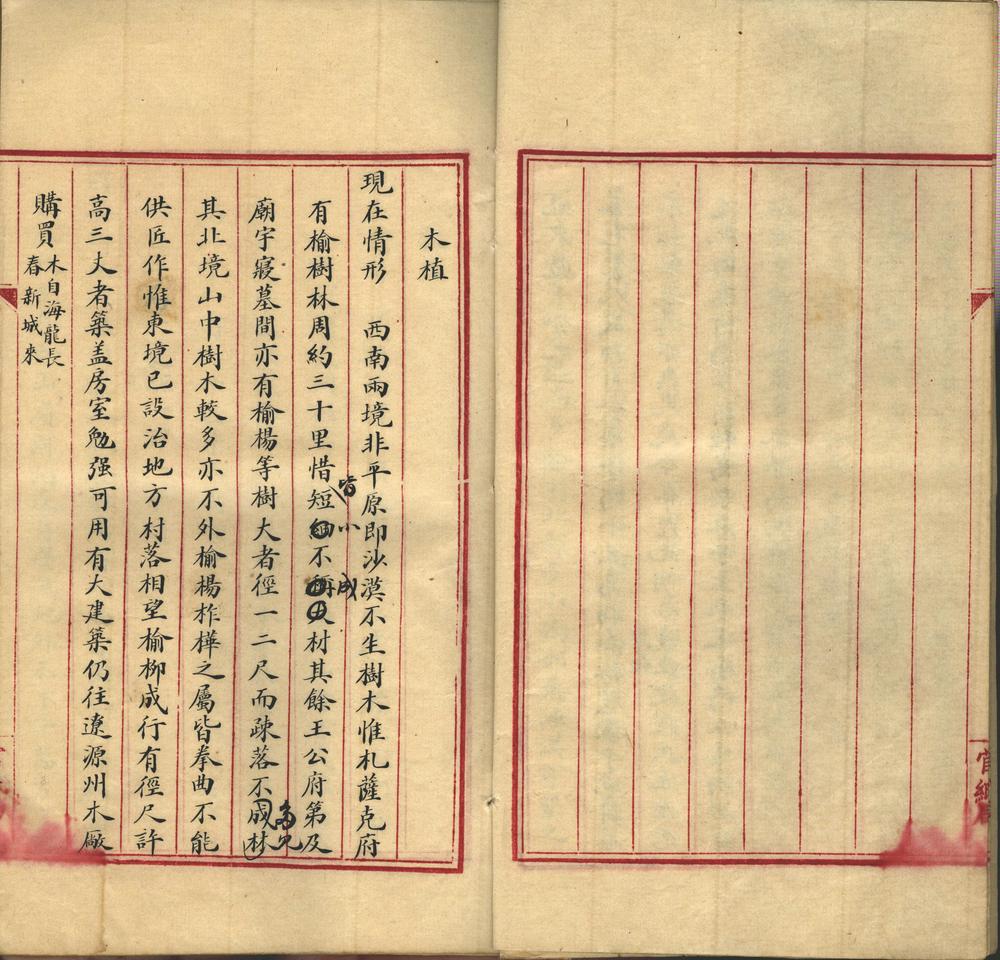 木植
現在情形　西南兩境非平原即沙漠不生樹木惟札薩克府
有榆樹林周約三十里惜皆短小不成材其餘王公府第及
廟宇寢墓間亦有榆楊等樹大者徑一二尺而疎落不多見
其北境山中樹木較多亦不外榆楊柞樺之屬皆拳曲不能
供匠作惟東境已設治地方村落相望榆柳成行有徑尺許
高三丈者築盖房室勉强可用有大建築仍往遼源州木廠
購買木自海龍長
春新城來